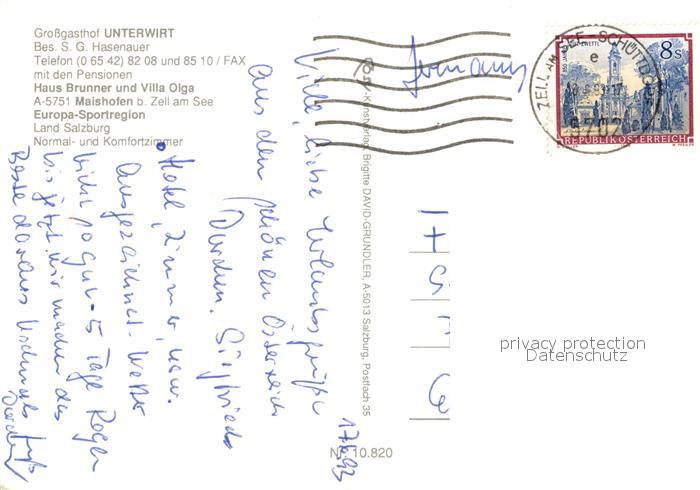 Großgasthof UNTERWIRT
Bes. S. G. Hasenauer
Telefon (0 65 42) 82 08 und 85 10 / FAX
mit den Pensionen
Haus Brunner und Villa Olga
A-5751 Maishofen b. Zell am See
Europa-Sportregion
Land Salzburg
Normal- und Komfortzimmer
17.6.93
Viele, liebe Urlaubsgrüße
aus dem schönen Österreich
Hotel, Zimmer, usw.
Ausgezeichnet. Wetter
nicht so gut - 5 Tage Regen
bis jetzt. Wir machen das
Beste daraus. Nochmals
Kunstverlag Brigitte DAVID-GRUNDLER, A-5013 Salzburg, Postfach 35
Nr. 10.820
ZELL AM SEE - SCHÜTTDORF
e
5702
ZWETTL
8 S
REPUBLIK ÖSTERREICH
privacy protection
Datenschutz